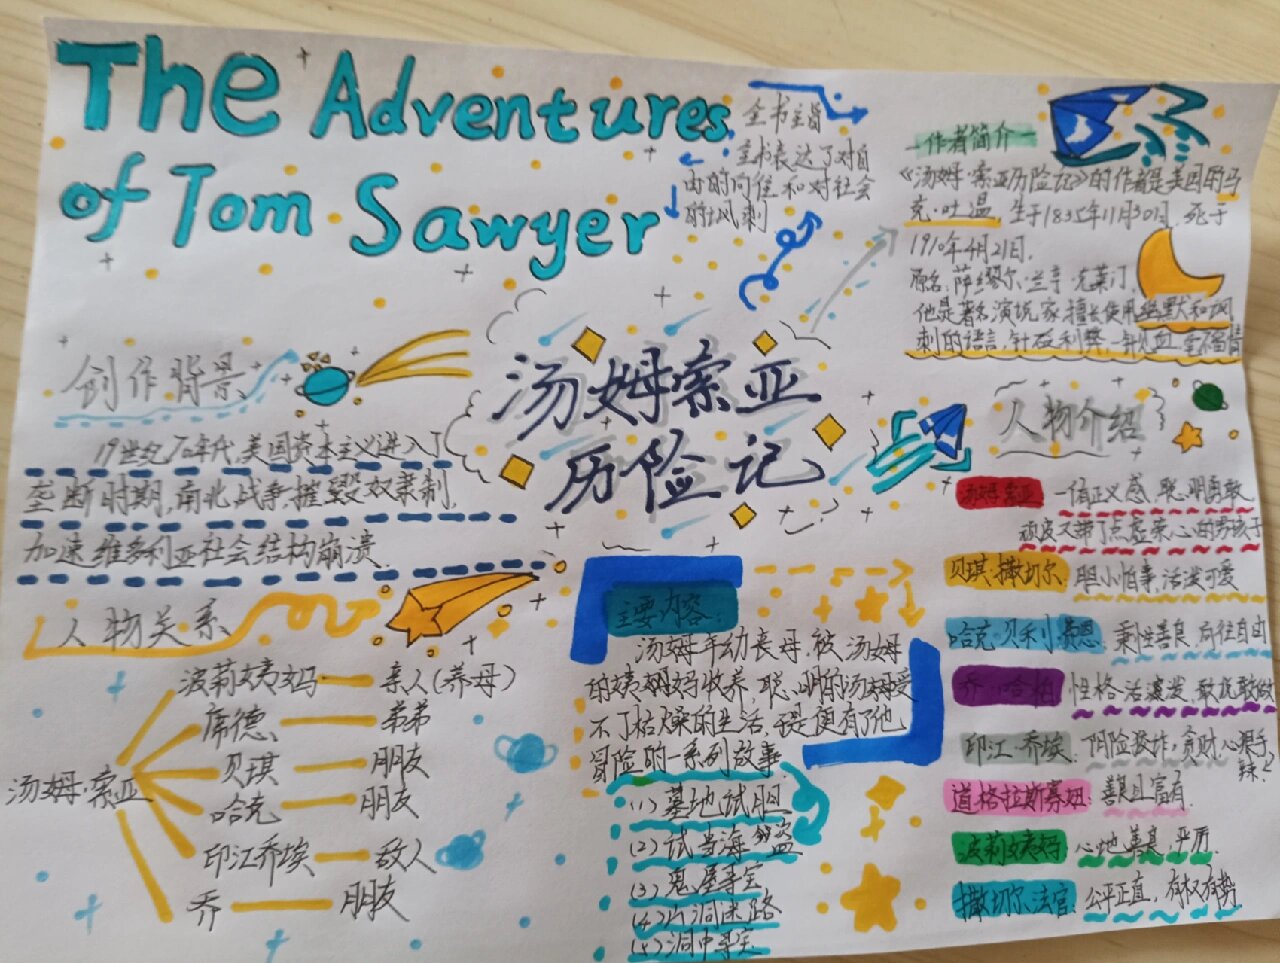 The Adventures
of Tom Sawyer
全书主旨
全书表达了对自
由的向往和对社会
的讽刺
作者简介
《汤姆·索亚历险记》的作者是美国的马
克·吐温,生于1835年11月30日,死于
1910年4月21日.
原名,萨缪尔·兰亭·克莱门,
他是著名演说家,擅长使用幽默和讽
刺的语言,针砭利弊,一针见血,毫不留情
汤姆索亚
历险记
创作背景
19世纪70年代,美国资本主义进入了
垄断时期,南北战争摧毁奴隶制,
加速维多利亚社会结构崩溃.
人物关系
汤姆·索亚
波莉姨妈 亲人(养母)
席德 弟弟
贝琪 朋友
哈克 朋友
印江乔埃 敌人
乔 朋友
主要内容:
汤姆年幼丧母,被汤姆
的姨妈收养,聪明的汤姆受
不了枯燥的生活,于是便有了他
冒险的一系列故事
(1)墓地试胆
(2)试当海盗
(3)鬼屋寻宝
(4)山洞迷路
(5)洞中寻宝
人物介绍
汤姆·索亚 一信正义感,聪明勇敢
顽皮又带了点虚荣心的男孩子
贝琪·撒切尔 胆小怕事,活泼可爱
哈克贝利·费恩 秉性善良,向往自由
乔·哈柏 性格活泼,敢说敢做
印江·乔埃 阴险狡诈,贪财,心狠手
辣
道格拉斯寡妇: 善良且富有
波莉姨妈 心地善良,严厉.
撒切尔法官: 公平正直,有权有势